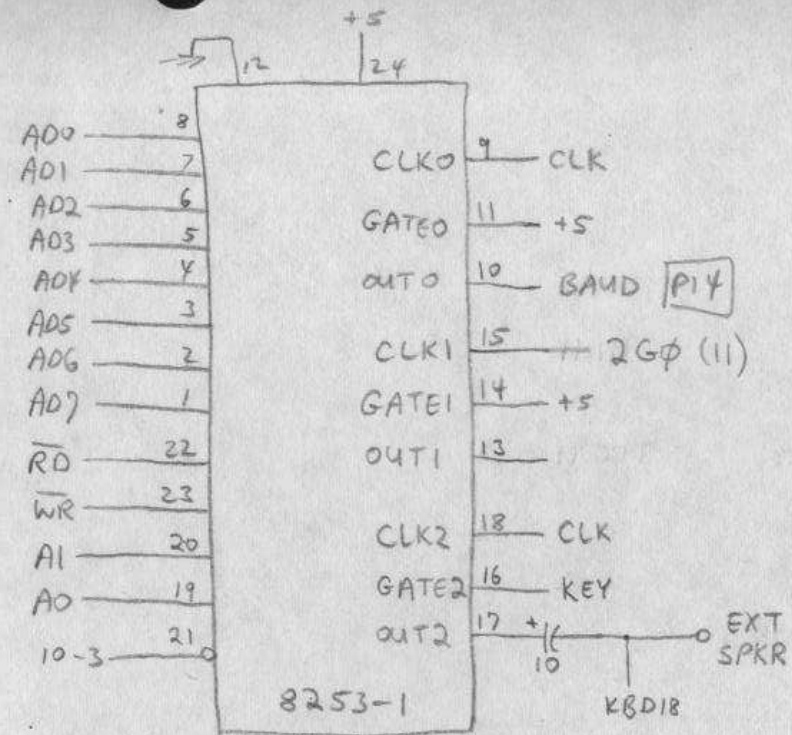 +5
12
24
AD0 8
AD1 7
AD2 6
AD3 5
AD4 4
AD5 3
AD6 2
AD7 1
RD 22
WR 23
A1 20
A0 19
10-3 21
CLK0 9 CLK
GATE0 11 +5
OUT0 10 BAUD P14
CLK1 15 2Gφ (11)
GATE1 14 +5
OUT1 13
CLK2 18 CLK
GATE2 16 KEY
OUT2 17 + 10 EXT
SPKR
KBD18
8253-1